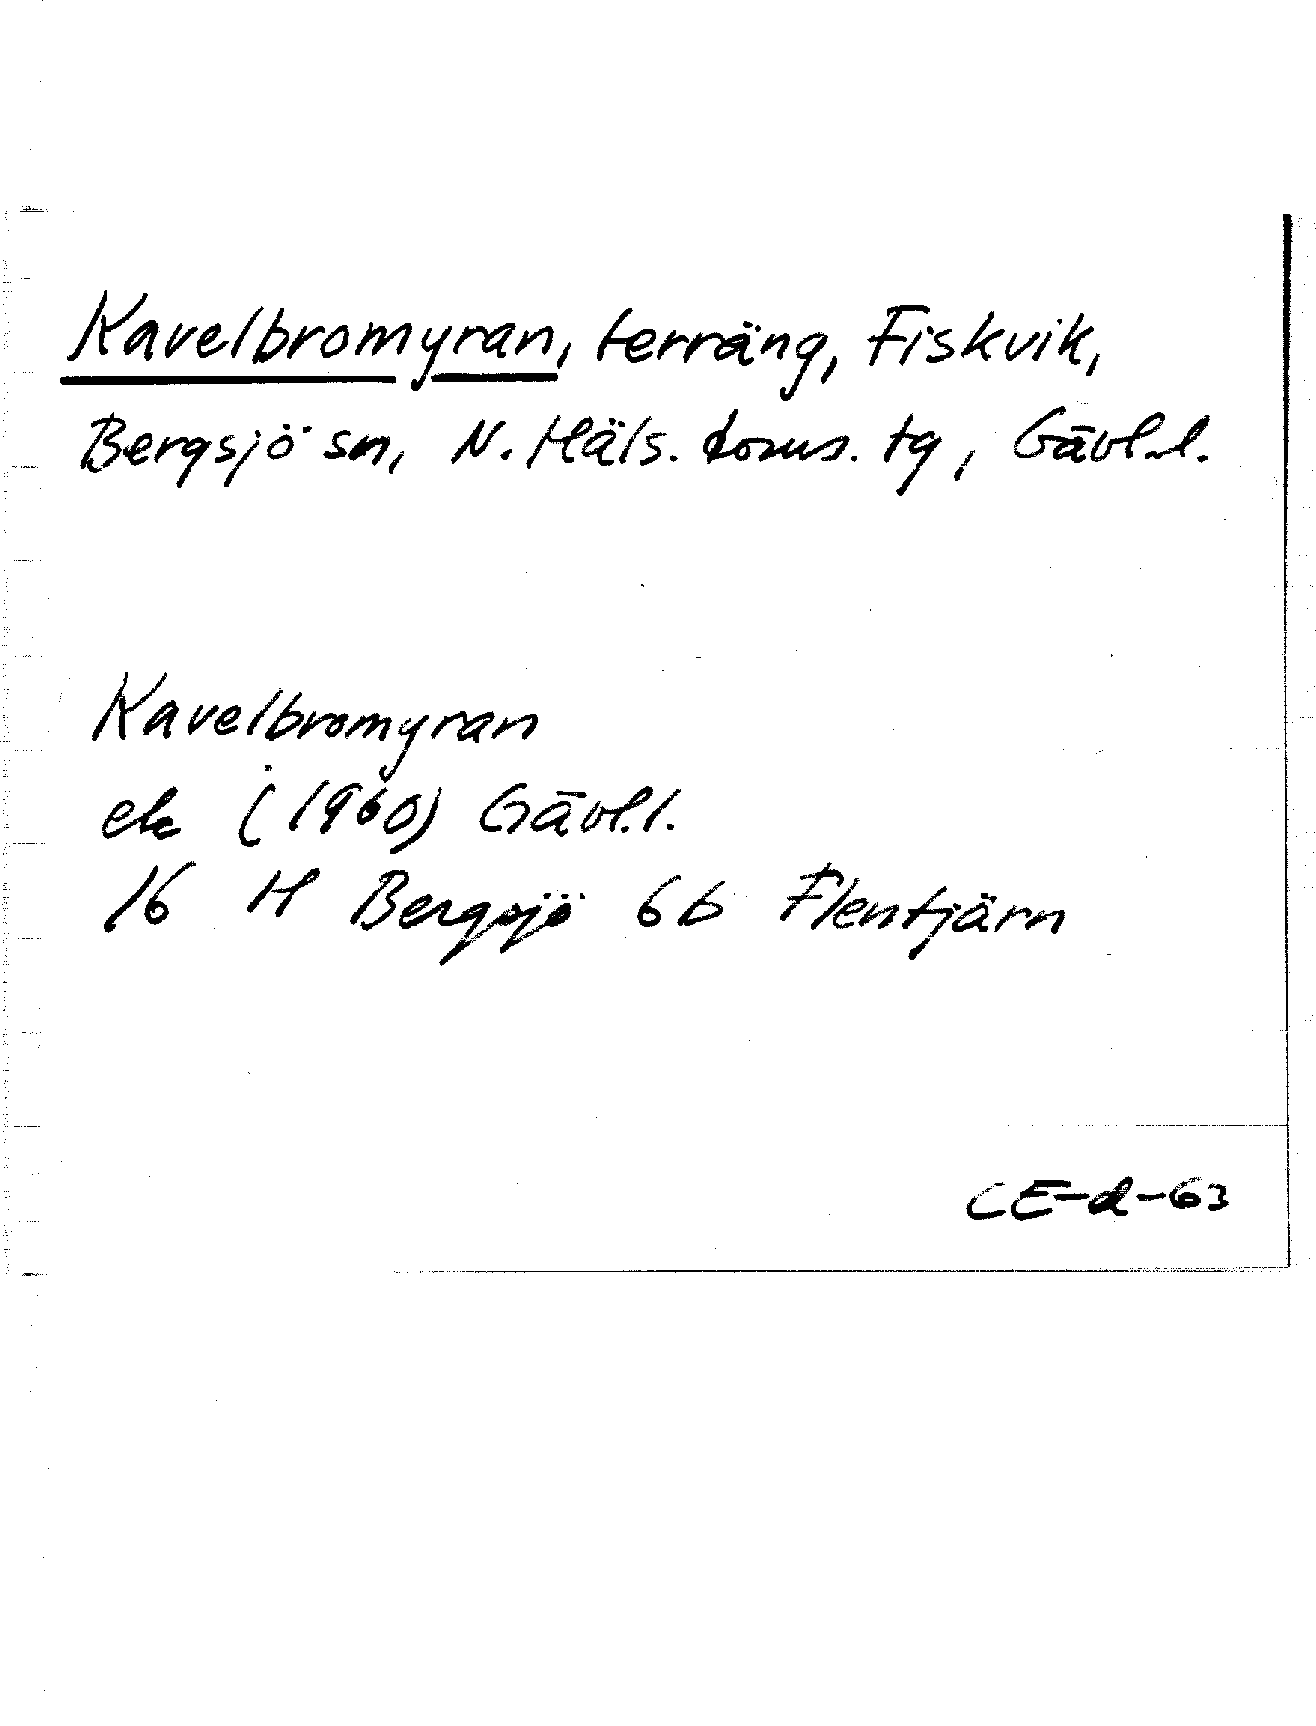 Kavelbromyran, terräng, Fiskvik,
Bergsjö sn, N. Häls. doms. tg, Gävl.l.
Kavelbromyran
ek (1960) Gävl.l.
16 H Bergsjö 6b Flentjärn
CE-d-63